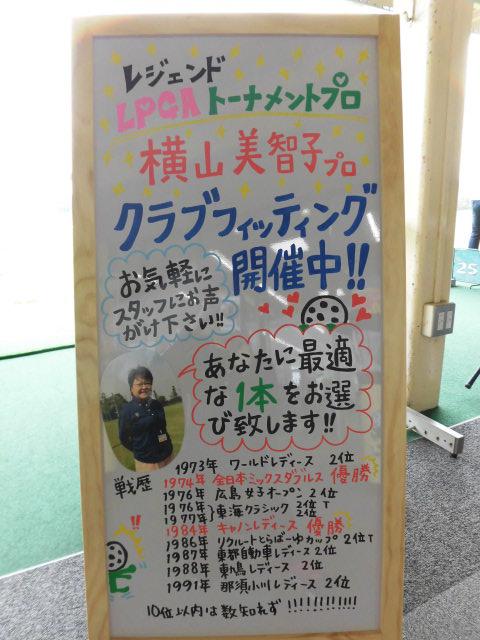 レジェンド
LPGA トーナメントプロ
横山美智子プロ
クラブフィッティング
開催中!!
お気軽に
スタッフにお声
がけ下さい!!
あなたに最適
な1本をお選
び致します!!
戦歴
1973年 ワールドレディース 2位
1974年 全日本ミックスダブルス 優勝
1976年 広島女子オープン 2位
1976年 } 東海クラシック 2位T
1977年 } 2位
1984年 キャノンレディース 優勝
1986年 リクルートとらばーゆカップ 2位T
1987年 東都自動車レディース 2位
1988年 東鳩レディース 2位
1991年 那須小川レディース 2位
10位以内は数知れず!!!!!!!!!!!
25